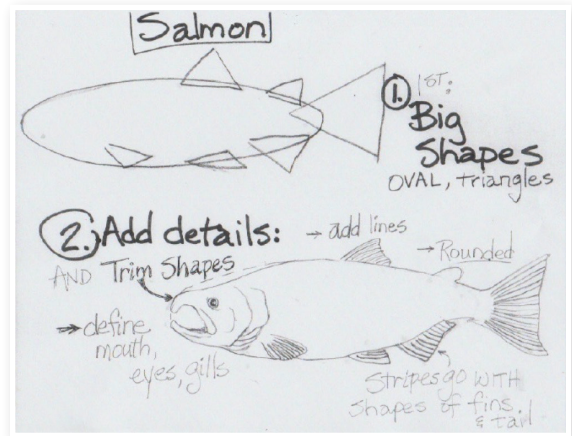 Salmon
1. 1ST:
Big
Shapes
OVAL, triangles
2. Add details:
AND Trim Shapes
→ add lines
→ Rounded
→ define
mouth,
eyes, gills
Stripes go WITH
shapes of fins
& tail